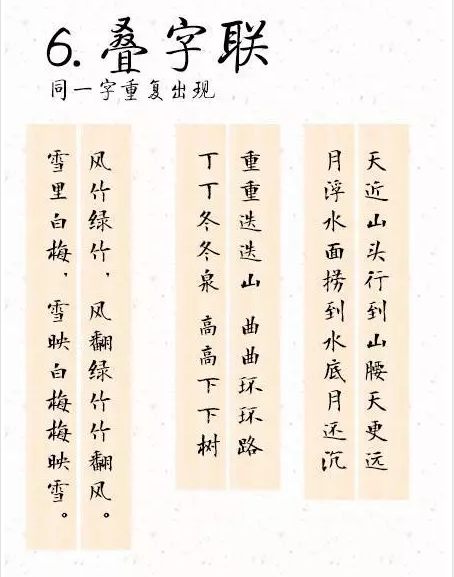 6. 叠字联
同一字重复出现
天近山头行到山腰天更远
月浮水面捞到水底月还沉
重重迭迭山 曲曲环环路
丁丁冬冬泉 高高下下树
风竹绿竹，风翻绿竹竹翻风。
雪里白梅，雪映白梅梅映雪。